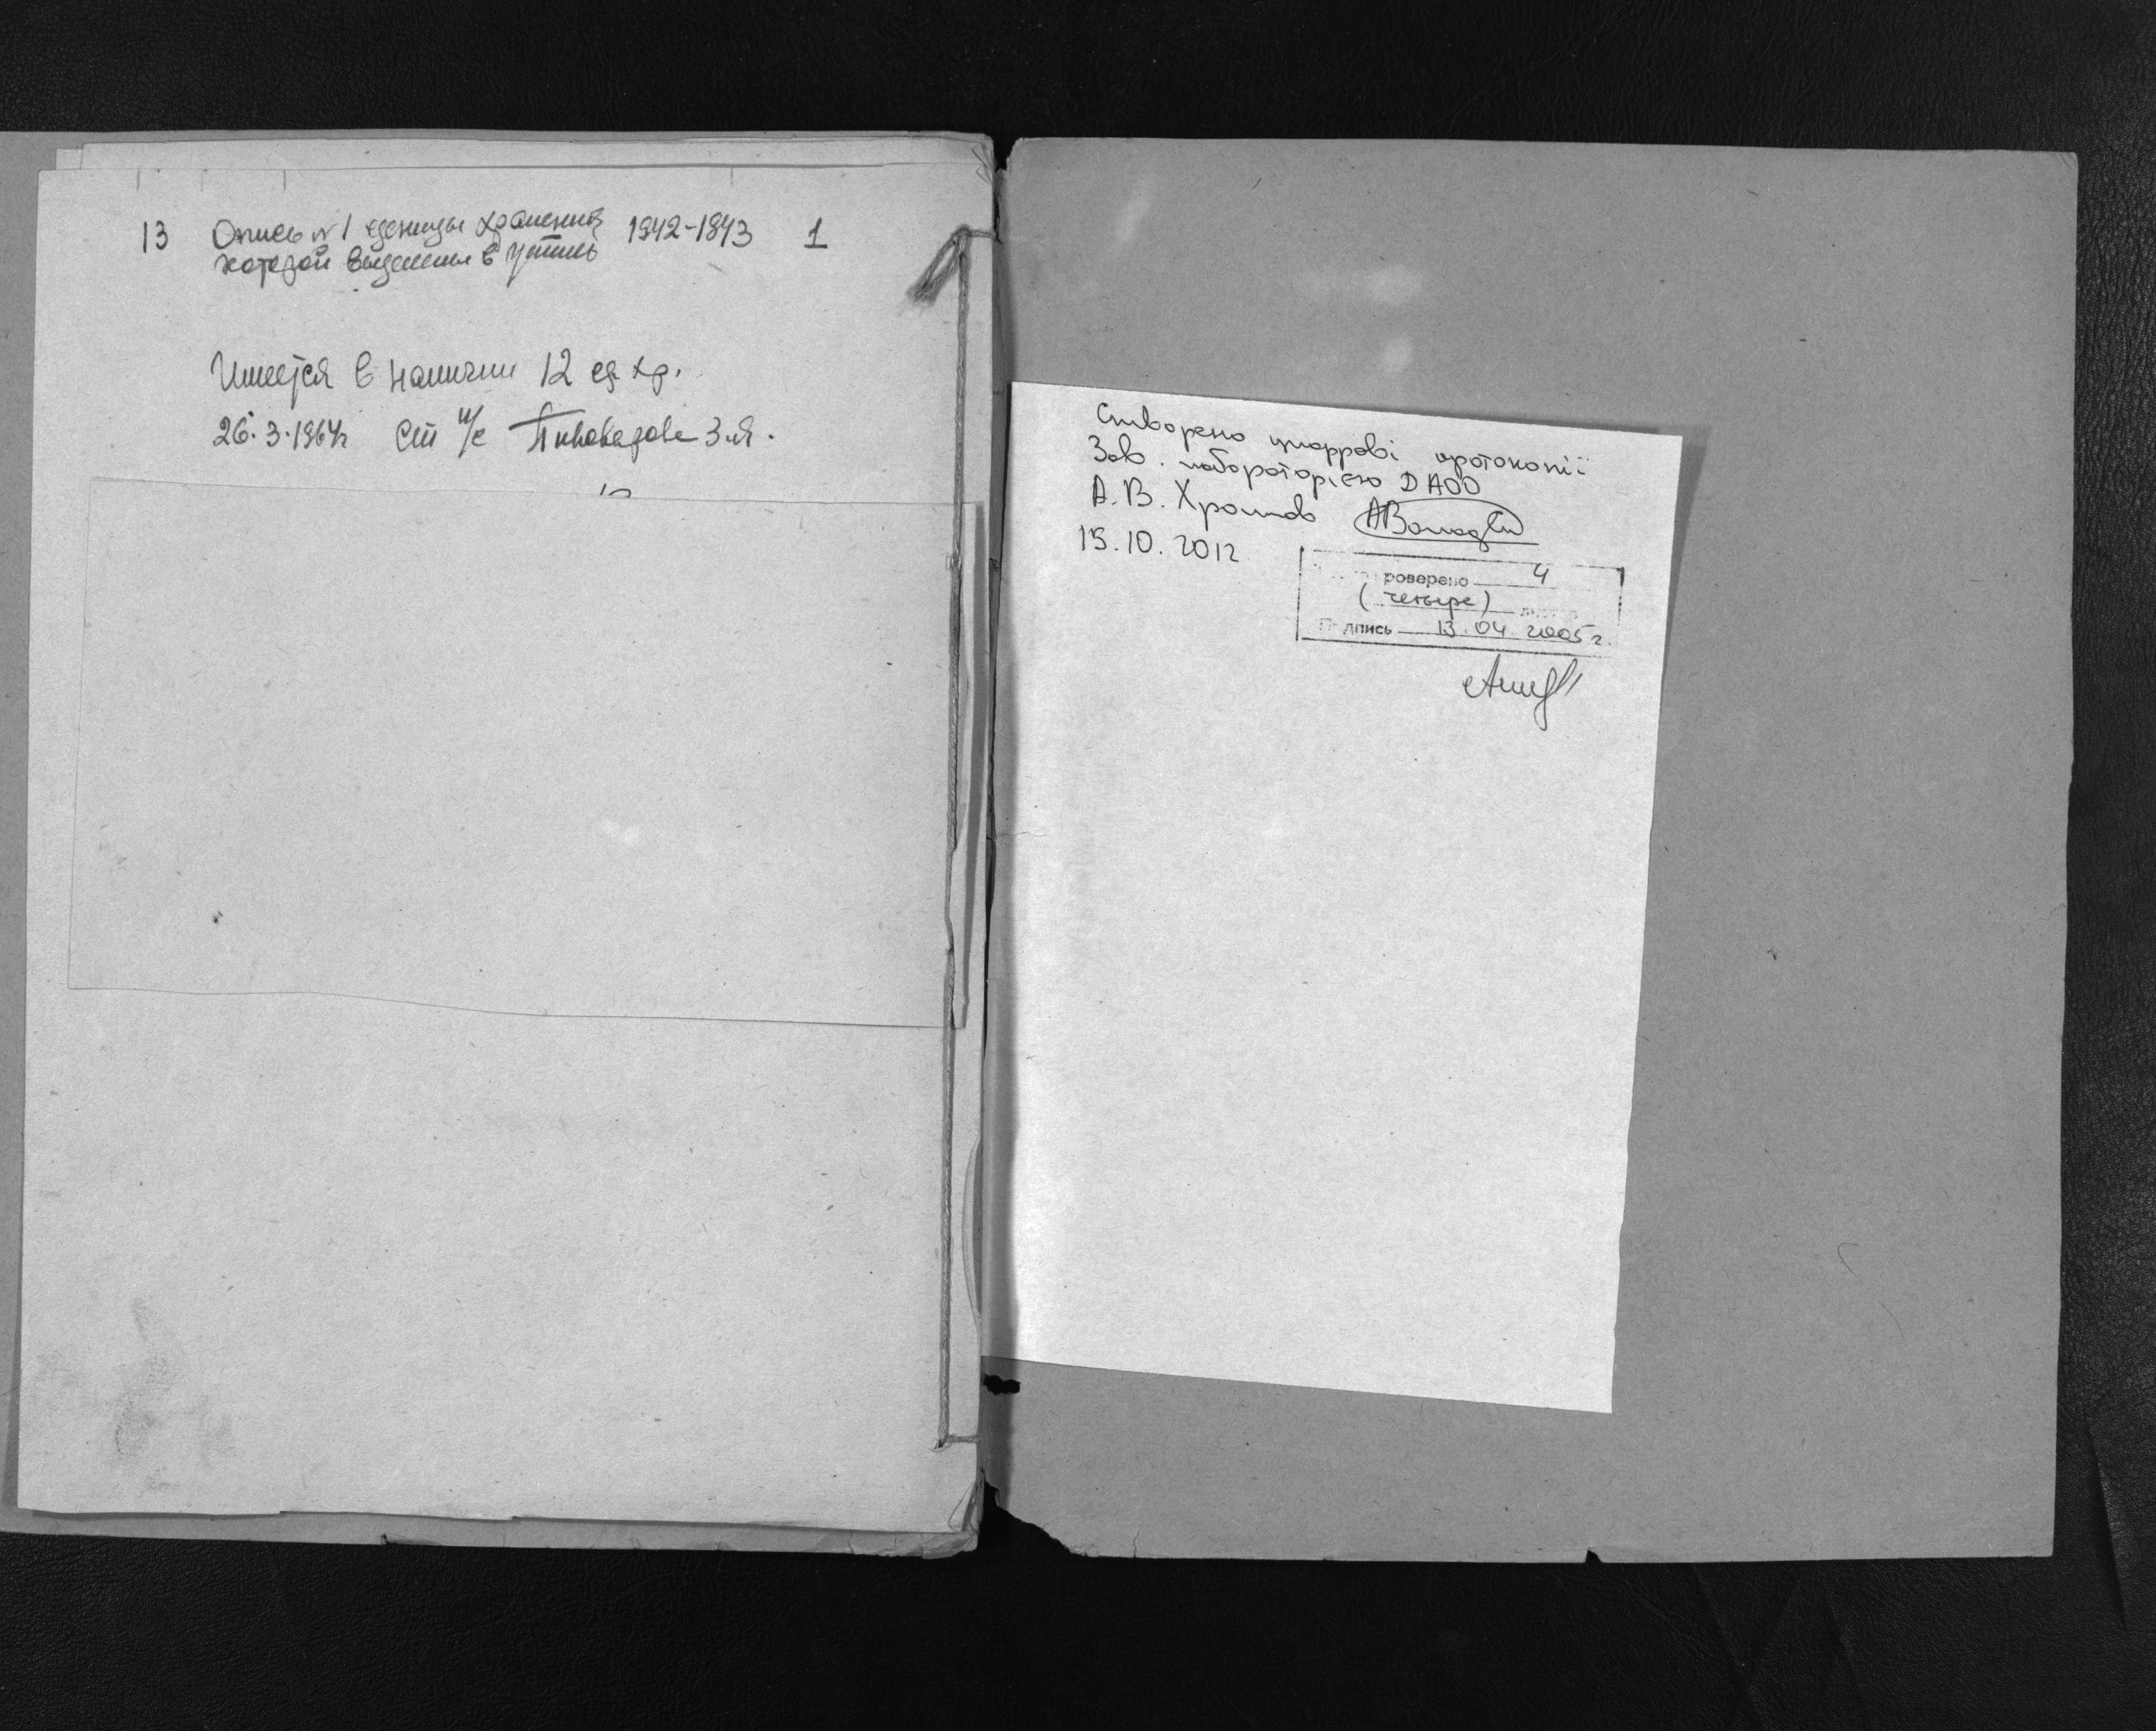 13 Опись №1 единицы хранения 1942-1943 1
которой выделены в утиль
Имеется в наличии 12 ед хр.
26.3.1964г Ст н/с Пивоварова З.Я.
Створено цифрові фотокопії
Зав. лабораторією ДАОО
А.В. Хромов
15.10.2012
роверено 4
(четыре)
дпись 13.04.2005г.